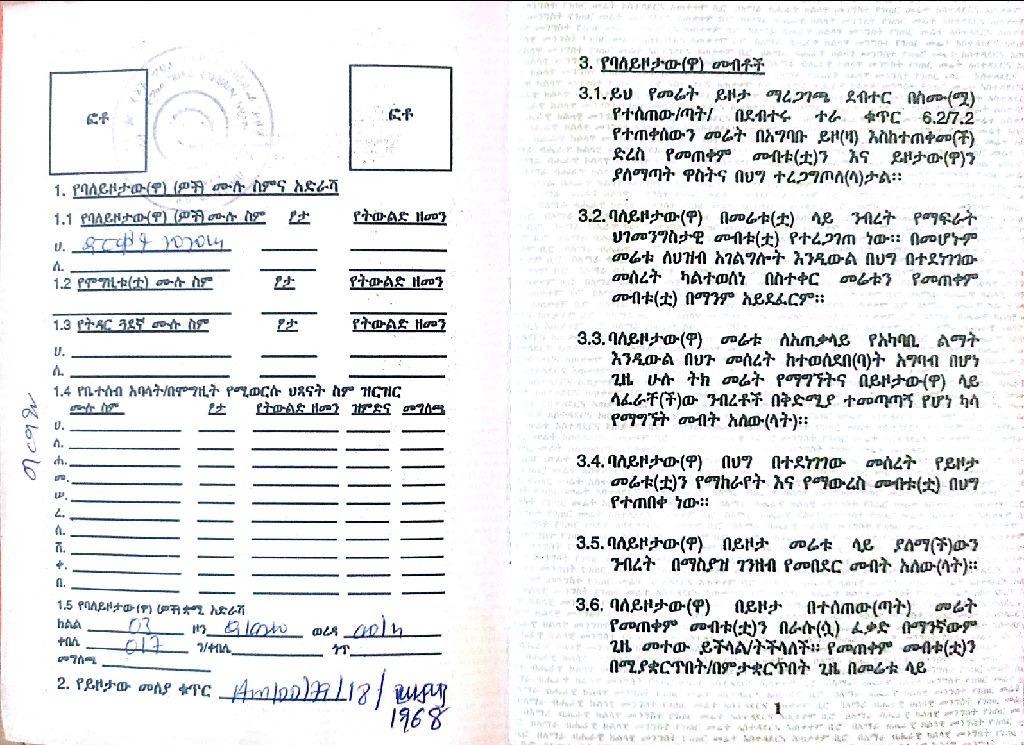 ፎቶ
ፎቶ
1. የባለይዞታው(ዋ) (ዎች) ሙሉ ስምና አድራሻ
1.1 የባለይዞታው(ዋ) (ዎች) ሙሉ ስም ፆታ የትውልድ ዘመን
ሀ.
ለ.
1.2 የሞግዚቱ(ቷ) ሙሉ ስም ፆታ የትውልድ ዘመን
1.3 የትዳር ጓደኛ ሙሉ ስም ፆታ የትውልድ ዘመን
ሀ.
ለ.
1.4 የቤተሰብ አባላት/በሞግዚት የሚወርሱ ህጻናት ስም ዝርዝር
ሙሉ ስም ፆታ የትውልድ ዘመን ዝምድና መግለጫ
ሀ.
ለ.
ሐ.
መ.
ሠ.
ረ.
ሰ.
ሸ.
ቀ.
በ.
1.5 የባለይዞታው(ዋ) (ዎች) ቋሚ አድራሻ
ክልል 03 ዞን ወረዳ
ቀበሌ 017 ን/ቀበሌ ጎጥ
መግለጫ
2. የይዞታው መለያ ቁጥር
1968
3. የባለይዞታው(ዋ) መብቶች
3.1. ይህ የመሬት ይዞታ ማረጋገጫ ደብተር በስሙ(ሟ)
የተሰጠው/ጣት/ በደብተሩ ተራ ቁጥር 6.2/7.2
የተጠቀሰውን መሬት በአግባቡ ይዞ(ዛ) እስከተጠቀመ(ች)
ድረስ የመጠቀም መብቱ(ቷ)ን እና ይዞታው(ዋ)ን
ያለማጣት ዋስትና በህግ ተረጋግጦለ(ላ)ታል።
3.2. ባለይዞታው(ዋ) በመሬቱ(ቷ) ላይ ንብረት የማፍራት
ህገመንግስታዊ መብቱ(ቷ) የተረጋገጠ ነው። በመሆኑም
መሬቱ ለህዝብ አገልግሎት እንዲውል በህግ በተደነገገው
መሰረት ካልተወሰነ በስተቀር መሬቱን የመጠቀም
መብቱ(ቷ) በማንም አይደፈርም።
3.3. ባለይዞታው(ዋ) መሬቱ ለአጠቃላይ የአካባቢ ልማት
እንዲውል በህጉ መሰረት ከተወሰደበ(ባ)ት አግባብ በሆነ
ጊዜ ሁሉ ትክ መሬት የማግኘትና በይዞታው(ዋ) ላይ
ላፈራቸ(ች)ው ንብረቶች በቅድሚያ ተመጣጣኝ የሆነ ካሳ
የማግኘት መብት አለው(ላት)።
3.4. ባለይዞታው(ዋ) በህግ በተደነገገው መሰረት የይዞታ
መሬቱ(ቷ)ን የማከራየት እና የማውረስ መብቱ(ቷ) በህግ
የተጠበቀ ነው።
3.5. ባለይዞታው(ዋ) በይዞታ መሬቱ ላይ ያለማ(ች)ውን
ንብረት በማስያዝ ገንዘብ የመበደር መብት አለው(ላት)።
3.6. ባለይዞታው(ዋ) በይዞታ በተሰጠው(ጣት) መሬት
የመጠቀም መብቱ(ቷ)ን በራሱ(ሷ) ፈቃድ በማንኛውም
ጊዜ መተው ይችላል/ትችላለች። የመጠቀም መብቱ(ቷ)ን
በሚያቋርጥበት/በምታቋርጥበት ጊዜ በመሬቱ ላይ
1